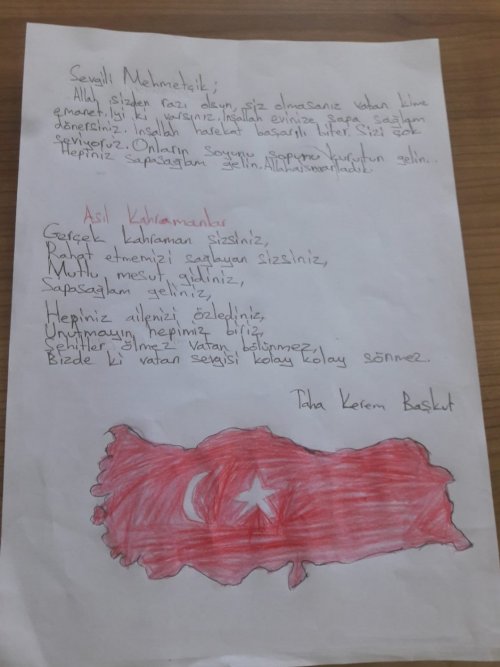 Sevgili Mehmetçik;
Allah sizden razı olsun, siz olmasanız vatan kime
emanet. İyi ki varsınız. İnşallah evinize sapa sağlam
dönersiniz. İnşallah harekat başarılı biter. Sizi çok
seviyoruz. Onların soyunu sopunu kurutun gelin...
Hepiniz sapasağlam gelin. Allahaısmarladık
Asıl Kahramanlar
Gerçek kahraman sizsiniz,
Rahat etmemizi sağlayan sizsiniz,
Mutlu mesut gidiniz,
Sapasağlam geliniz,
Hepiniz ailenizi özlediniz,
Unutmayın hepimiz biriz,
Şehitler ölmez vatan bölünmez,
Bizde ki vatan sevgisi kolay kolay sönmez.
Taha Kerem Başkut